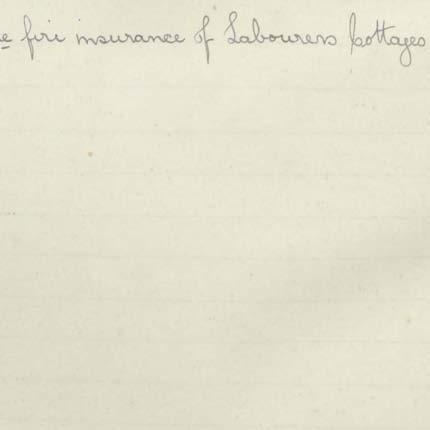 e fire insurance of Labourers Cottages